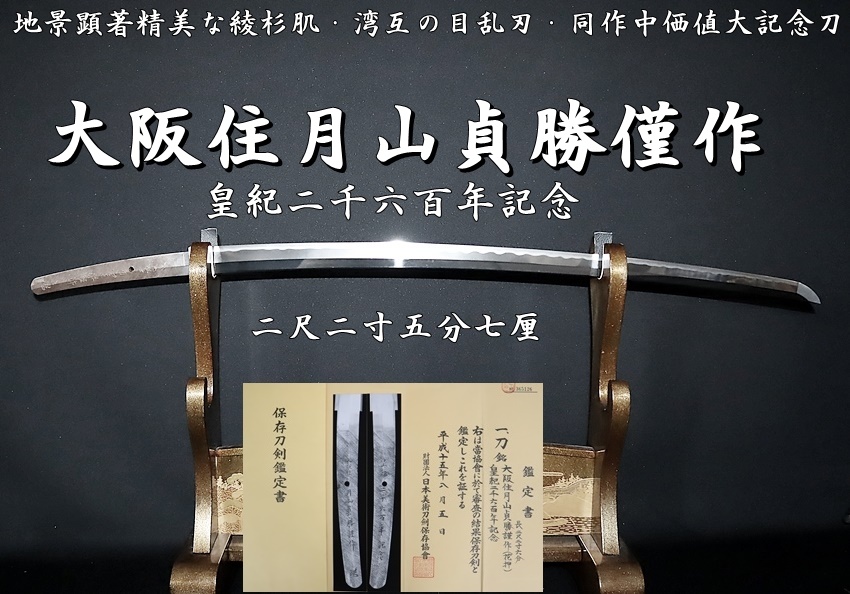 地景顕著精美な綾杉肌・湾互の目乱刃・同作中価値大記念刀
大阪住月山貞勝僅作
皇紀二千六百年記念
二尺二寸五分七厘
保存刀剣鑑定書
鑑定書
一、刀 銘 大阪住月山貞勝謹作(花押)
皇紀二千六百年記念
右は當協會に於て審査の結果保存刀剣と
鑑定しこれを証する
平成十五年八月五日
財團法人日本美術刀剣保存協會